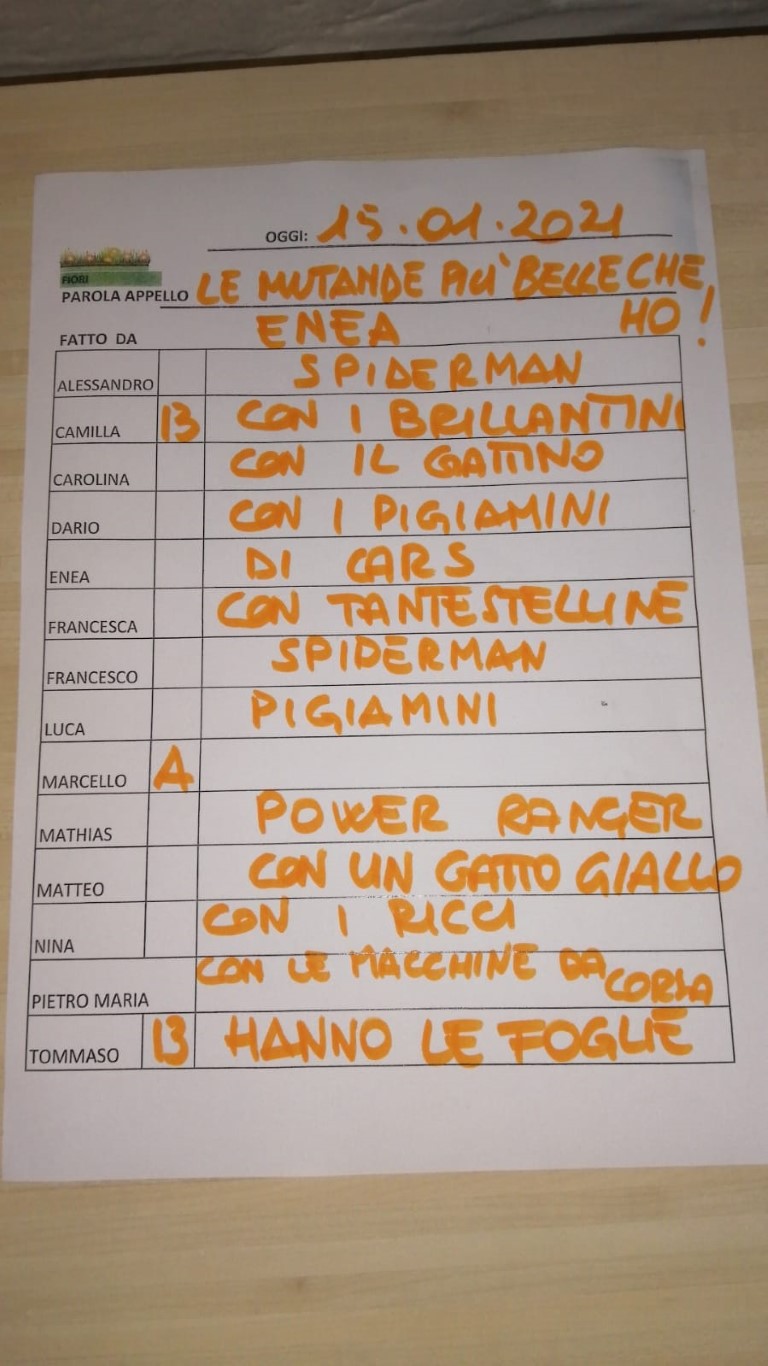 OGGI: 15.01.2021
FIORI
PAROLA APPELLO LE MUTANDE PIU' BELLE CHE
HO!
FATTO DA ENEA
ALESSANDRO SPIDERMAN
CAMILLA 13 CON I BRILLANTINI
CAROLINA CON IL GATTINO
DARIO CON I PIGIAMINI
ENEA DI CARS
FRANCESCA CON TANTE STELLINE
FRANCESCO SPIDERMAN
LUCA PIGIAMINI
MARCELLO A
MATHIAS POWER RANGER
MATTEO CON UN GATTO GIALLO
NINA CON I RICCI
PIETRO MARIA CON LE MACCHINE DA CORSA
TOMMASO 13 HANNO LE FOGLIE